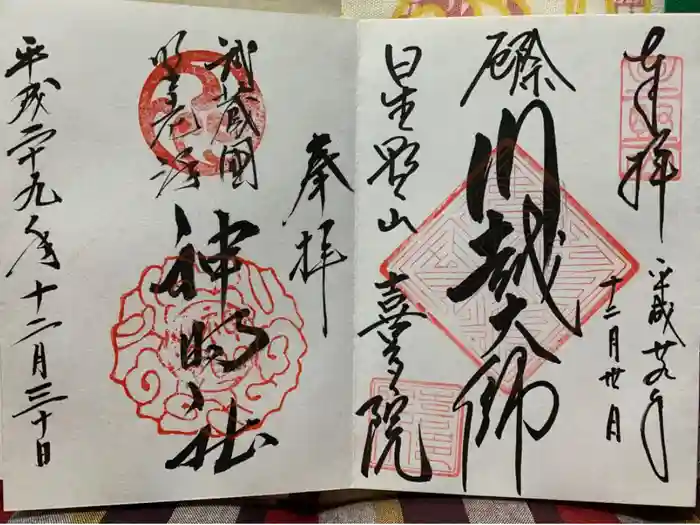 奉拝
平成廿九年
十二月卅日
厄除
川越大師
星野山 喜多院
奉拝
武蔵國
野老澤
神明社
平成二十九年十二月三十日